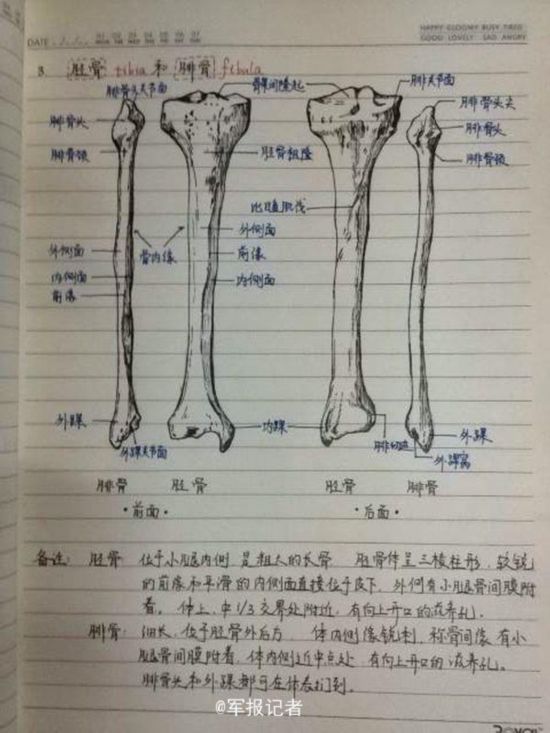 DATE
01 02 03 04 05 06 07
MON TUE WED THU FRI SAT SUN
HAPPY GLOOMY BUSY TIRED
GOOD LOVELY SAD ANGRY
3 胫骨 tibia 和 腓骨 fibula
腓骨头关节面
髁间隆起
腓关节面
腓骨头尖
腓骨头
腓骨头
腓骨颈
胫骨粗隆
腓骨颈
比目鱼肌线
外侧面
外侧面
骨内缘
前缘
内侧面
内侧面
前缘
外踝
内踝
外踝
外踝关节面
腓切迹
外踝窝
腓骨 胫骨 胫骨 腓骨
·前面· ·后面·
备注: 胫骨: 位于小腿内侧 是粗大的长骨 胫骨体呈三棱柱形, 较锐
的前缘和平滑的内侧面直接位于皮下, 外侧有小腿骨间膜附
着。体上、中1/3交界处附近, 有向上开口的滋养孔.
腓骨: 细长, 位于胫骨外后方 体内侧缘锐利, 称骨间缘 有小
腿骨间膜附着, 体内侧近中点处, 有向上开口的滋养孔。
腓骨头和外踝都可在体表扪到.
@军报记者